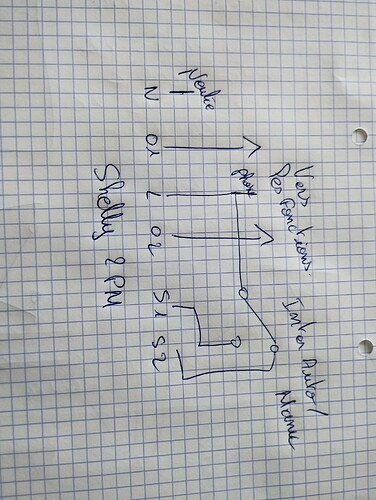 Neutre
N
O1
L
O2
S1
S2
phase
Vers
Des fonctions.
Inter Auto/
Manu
Shelly 2 PM